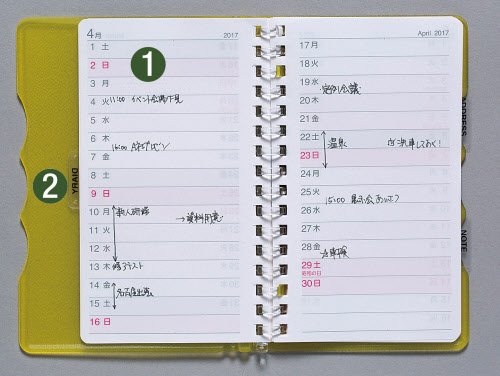 4月 2017
1 土
2 日
3 月
4 火 11:00 イベント会場下見
5 水
6 木
16:00 A社プレゼン
7 金
8 土
9 日
10 月 新人研修 →資料用意
11 火
12 水
13 木
14 金
名古屋出張
15 土
16 日
April 2017
17 月
18 火
19 水
定例会議
20 木
21 金
22 土 温泉
23 日
24 月
25 火
15:00
26 水
27 木
28 金
29 土
昭和の日
30 日
1
2
DIARY
ADDRESS
NOTE